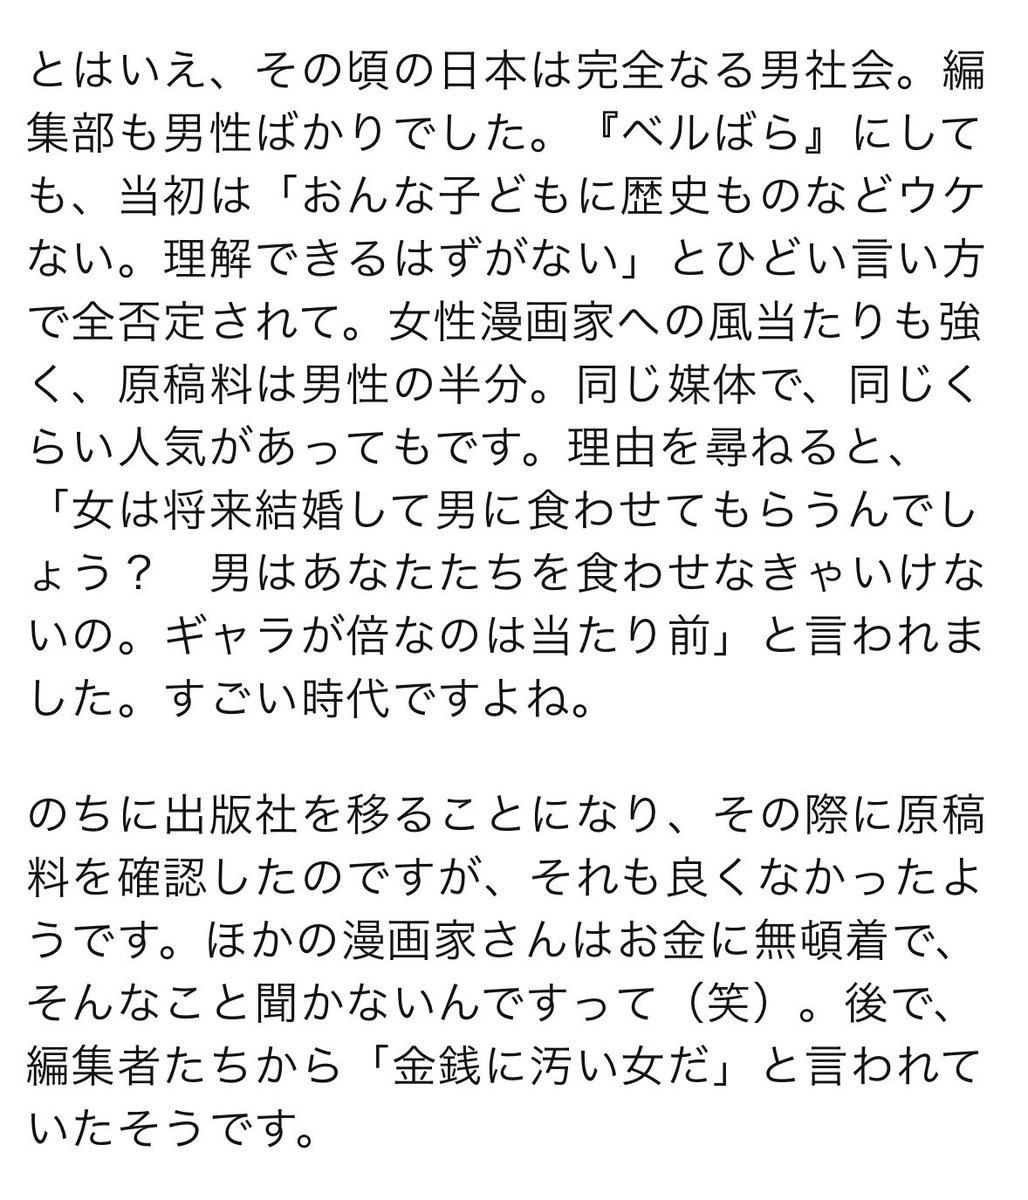 とはいえ、その頃の日本は完全なる男社会。編
集部も男性ばかりでした。『ベルばら』にして
も、当初は「おんな子どもに歴史ものなどウケ
ない。理解できるはずがない」とひどい言い方
で全否定されて。女性漫画家への風当たりも強
く、原稿料は男性の半分。同じ媒体で、同じく
らい人気があってもです。理由を尋ねると、
「女は将来結婚して男に食わせてもらうんでし
ょう？　男はあなたたちを食わせなきゃいけな
いの。ギャラが倍なのは当たり前」と言われま
した。すごい時代ですよね。
のちに出版社を移ることになり、その際に原稿
料を確認したのですが、それも良くなかったよ
うです。ほかの漫画家さんはお金に無頓着で、
そんなこと聞かないんですって（笑）。後で、
編集者たちから「金銭に汚い女だ」と言われて
いたそうです。